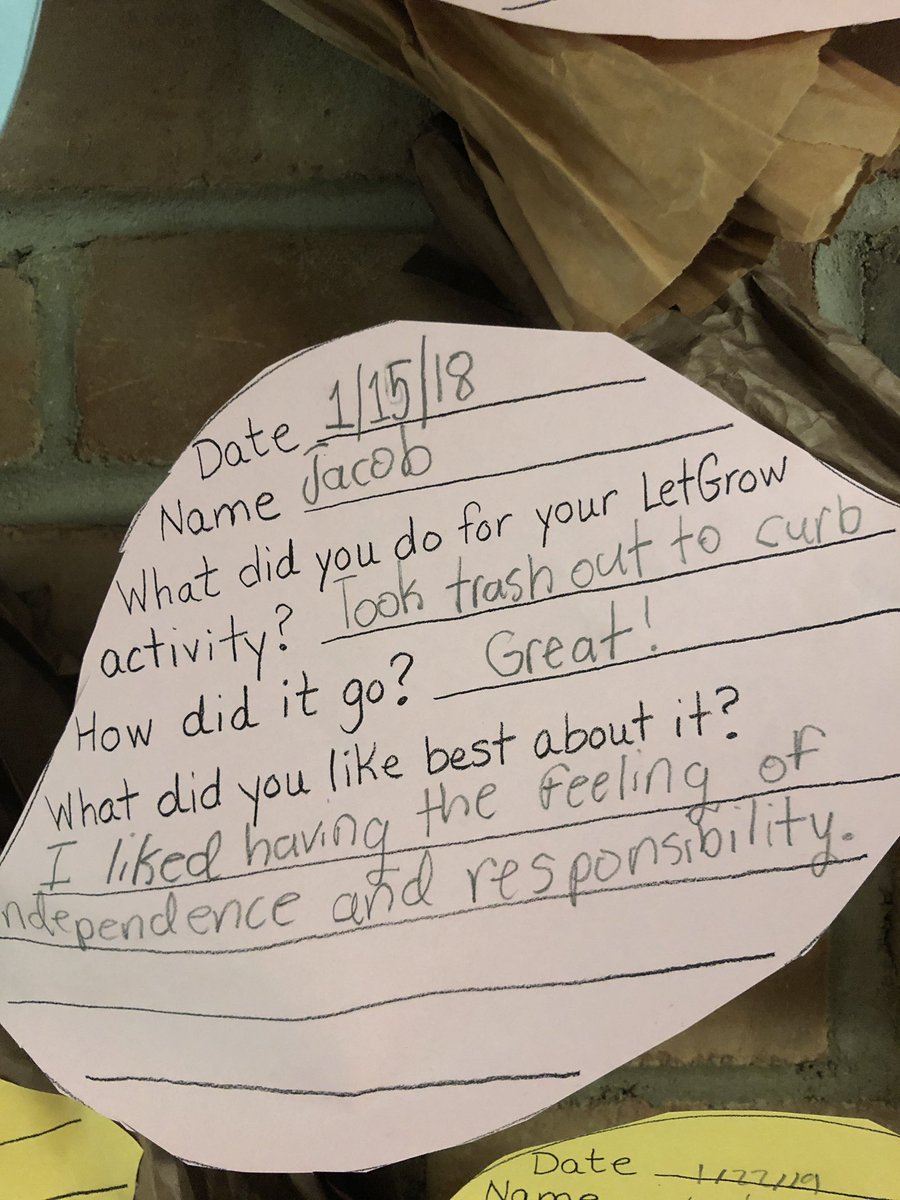 Date 1/15/18
Name Jacob
What did you do for your LetGrow
activity? Took trash out to curb
How did it go? Great!
What did you like best about it?
I liked having the feeling of
ndependence and responsibility.
Date 1/22/19
Name